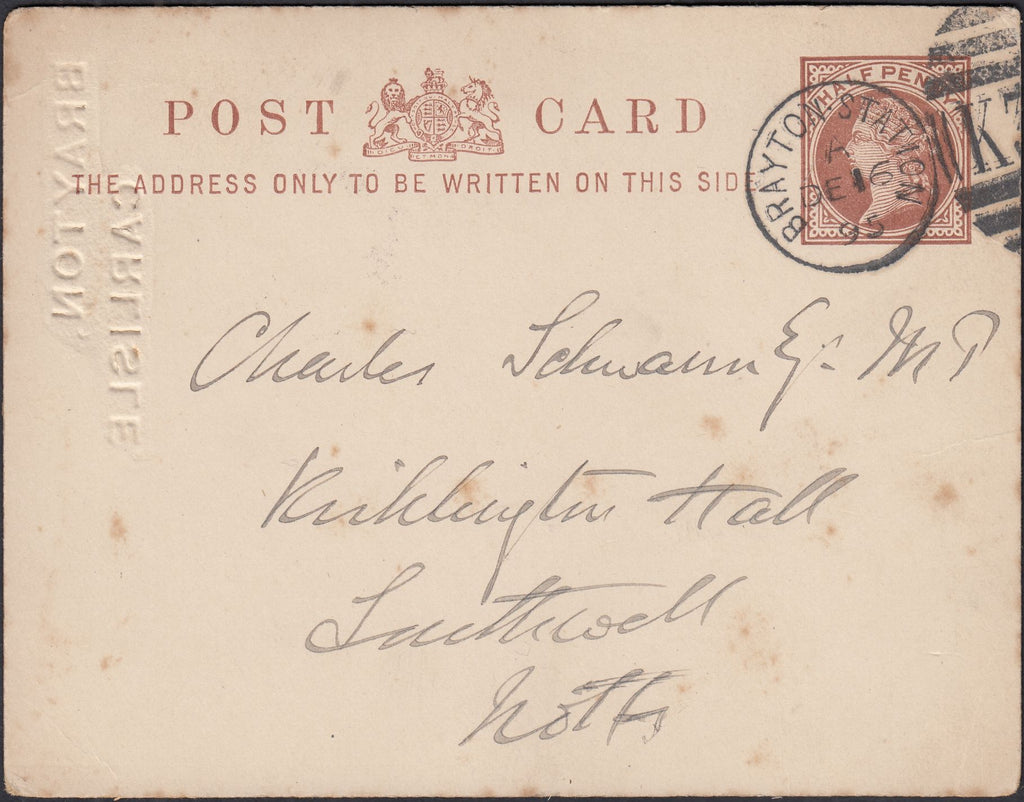 POST CARD
THE ADDRESS ONLY TO BE WRITTEN ON THIS SIDE
HALF PENNY
BRAYTON STATION
DE 16
95
K
BRAYTON,
CARLISLE
Charles Schwann Esq. M P
Kirklington Hall
Southwell
Notts